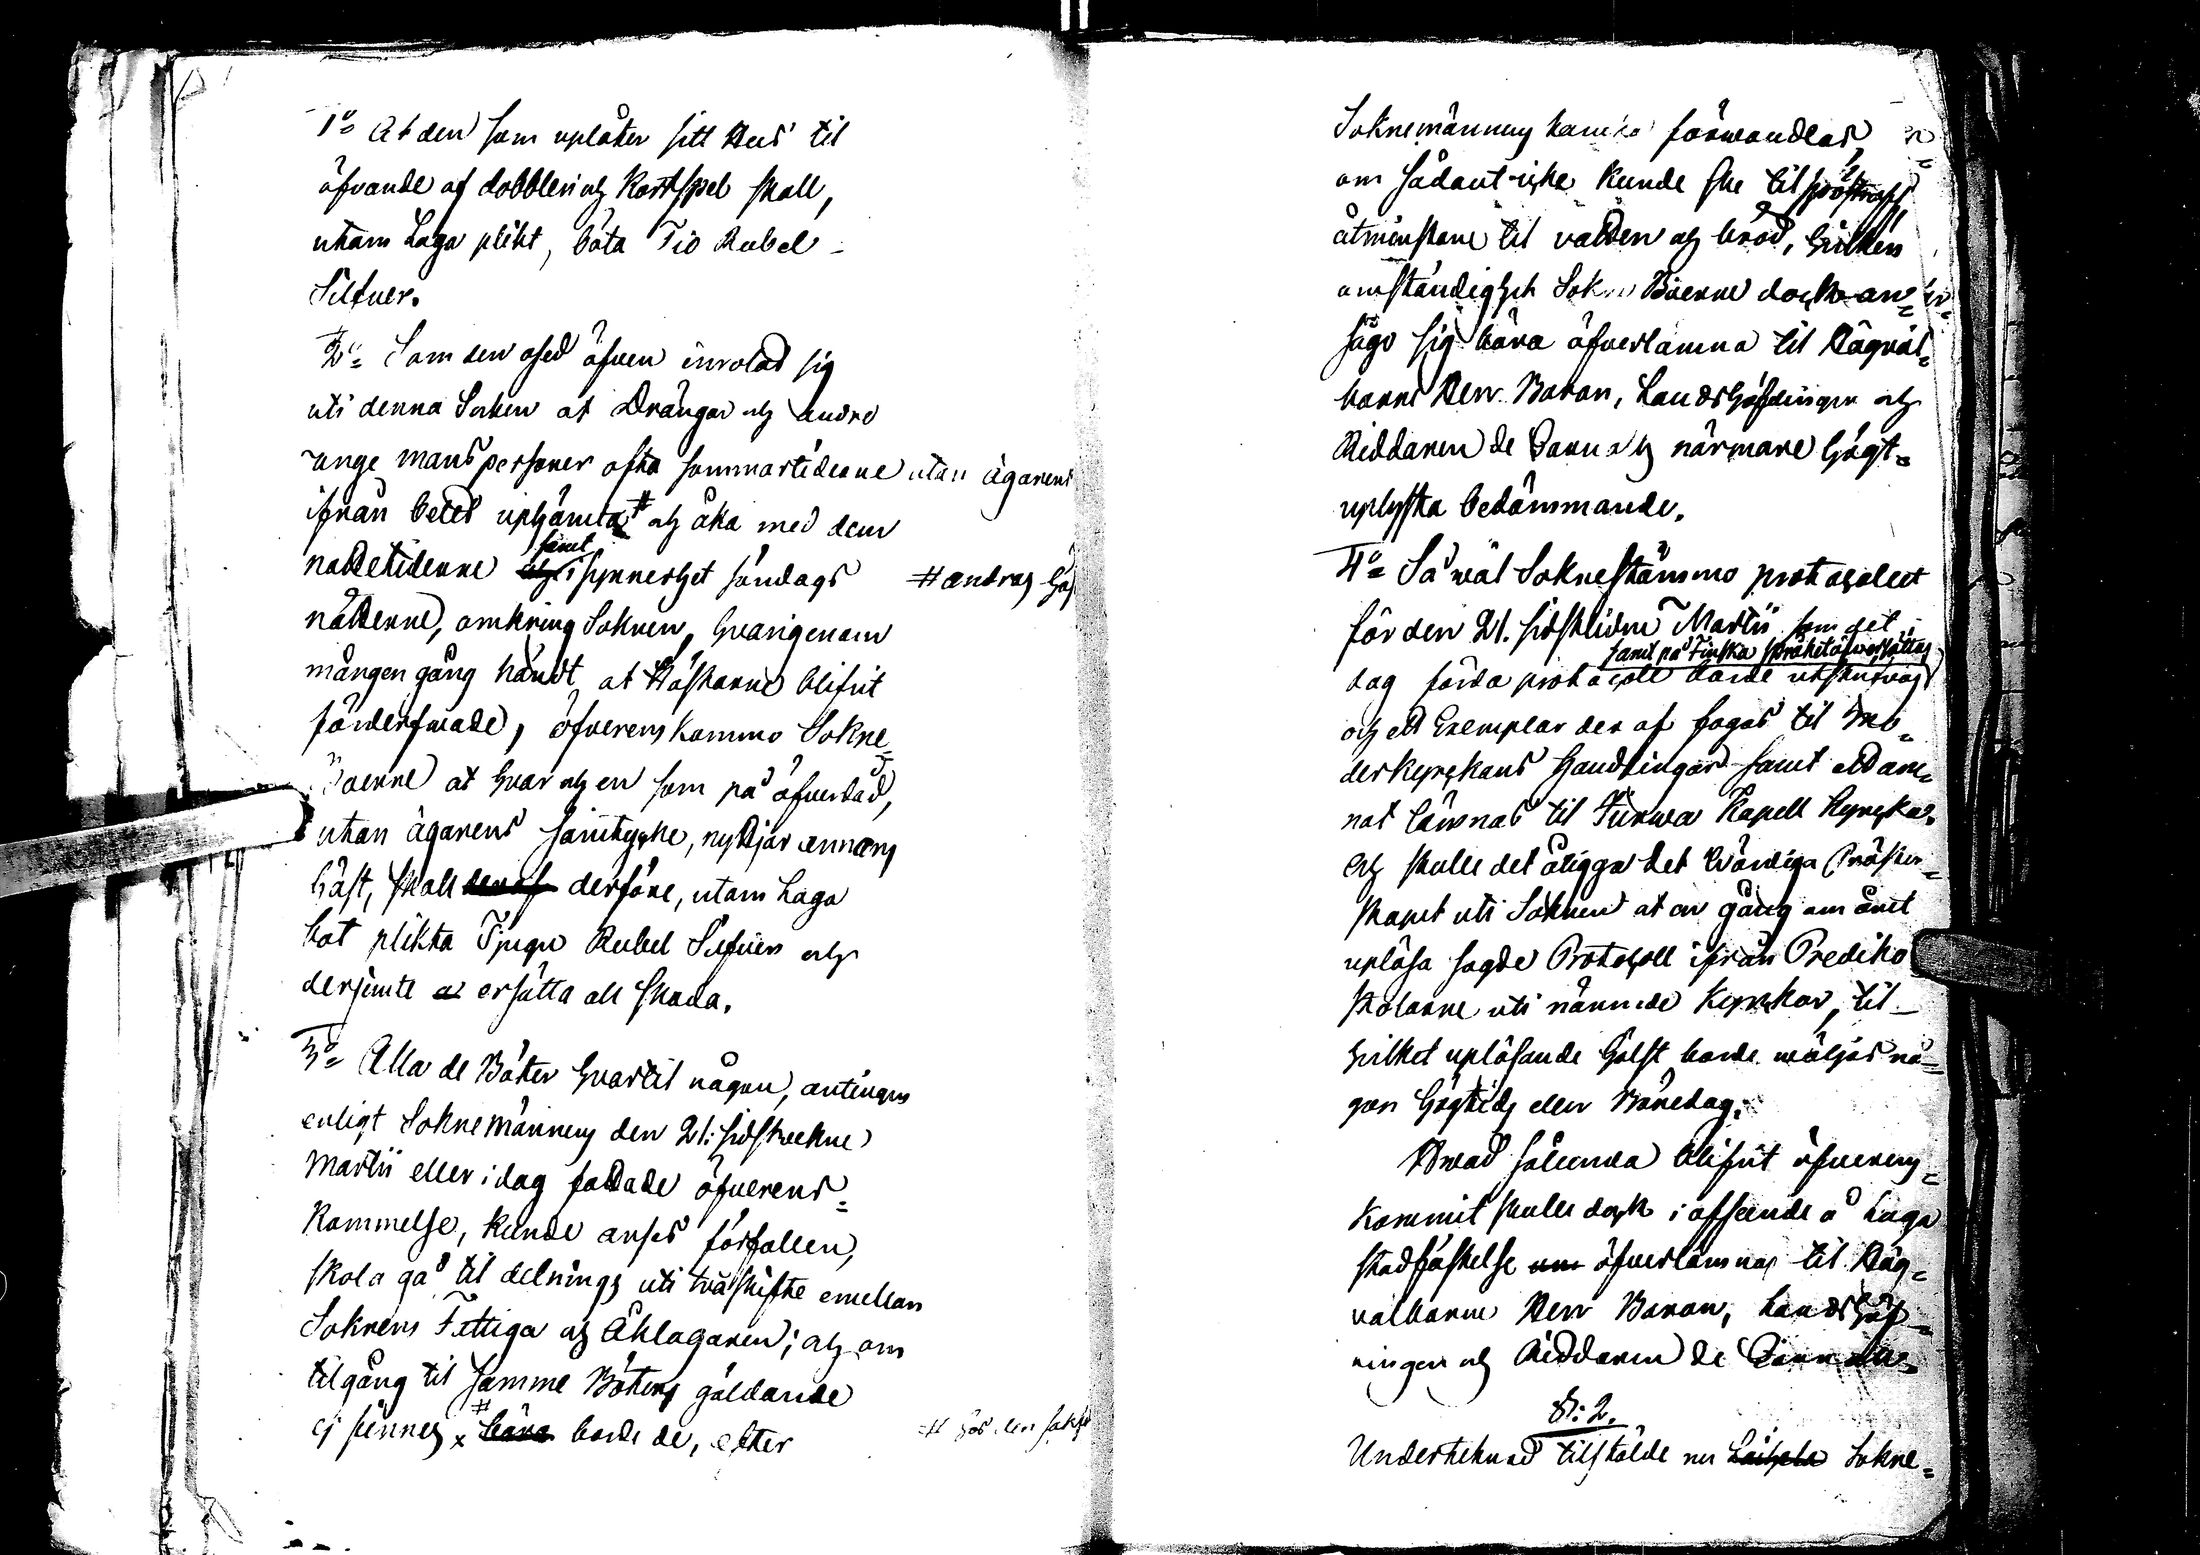 1o= At den som uplåter sitt Hus til
öfvande af dobbleri och Kortspel skall,
utom Laga plikt, böta Tio Rubel
Silfver.
2o= Som den osed öfven inrotad sig
uti denna Socken at Drängar och andre
unge manspersoner ofta sommartiderne utan ägarens
ifrån betes uphämta # och åka med dem
nattetiderne samt i synnerhet söndags
# andras häs
nätterne, omkring Soknen, hvarigenom
mången gång händt at Hästarne blifvit
förderfvade, öfverenskommo Sokne=
Boerne at hvar och en som på öfverdåd,
utan ägarens samtycke, nyttjar annans
häst, skall deraf derföre, utom Laga
bot plikta Tjugu Rubel Silfver och
derjemte ersätta all skada.
3o= Alla de Böter hvartil någon, antingen
enligt Soknemännens den 21: sidstvekne
Martii eller i dag fattade öfverens=
kommelse, kunde anses förfallen,
skola gå til delnings uti tväskifte emellan
Soknens Fattiga och Åklagaren; och om
tilgång til samme Böters gäldande
ej finnes # böra borde de, efter
# hos den sakf
Soknemännens förvandlas,
om sådant icke kunde ske til spöstraff
åtminstone til vatten och bröd, hvilken
omständighet Sokne Boerne dock an=
sågo sig böra öfverlämna til Högväl=
borne Herr Baron, Landshöfdingen och
Riddaren de Carnall närmare högt=
uplysta bedömmande.
4o= Så väl Soknestämmo protocollet
för den 21. sidstlidne Martii som det i
samt på Finska språket öfversättas
dag förda protocoll borde utskrifvas
och ett Exemplar der af fogas til Mo=
derkyrckans Handlingar samt ett an=
nat lämnas til Kapell Kyrcka.
och skulle det åligga det Wördiga Präster=
skapet uti Soknen at en gång om året
upläsa sagde Protocoll ifrån Prediko
stolarne uti nämnde Kyrckor, til
hvilket upläsande hälst borde wäljas nå=
gon Högtids eller Bönedag.
Hwad sålunda blifvit öfverens=
kommit skulle dock i afseende å Laga
stadfästelse öfverlämnas til Hög=
välborne Herr Baron, Landshöf=
dingen och Riddaren de Carnall.
§: 2.
Underteknad tilstälde nu Laihela Sokne=